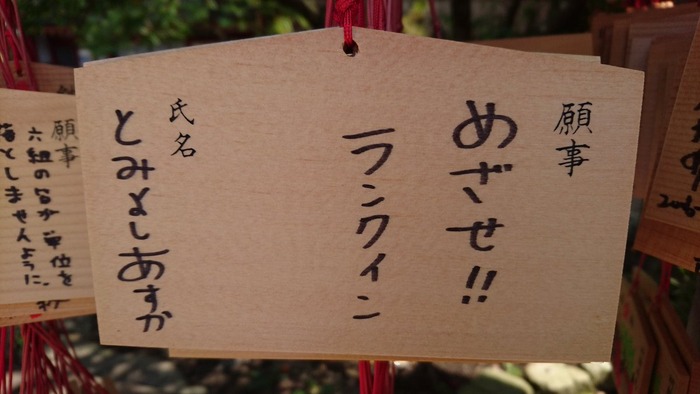 願事
めざせ!!
ランクイン
氏名
とみよしあすか
願事
六組の
単位を
落としませんように